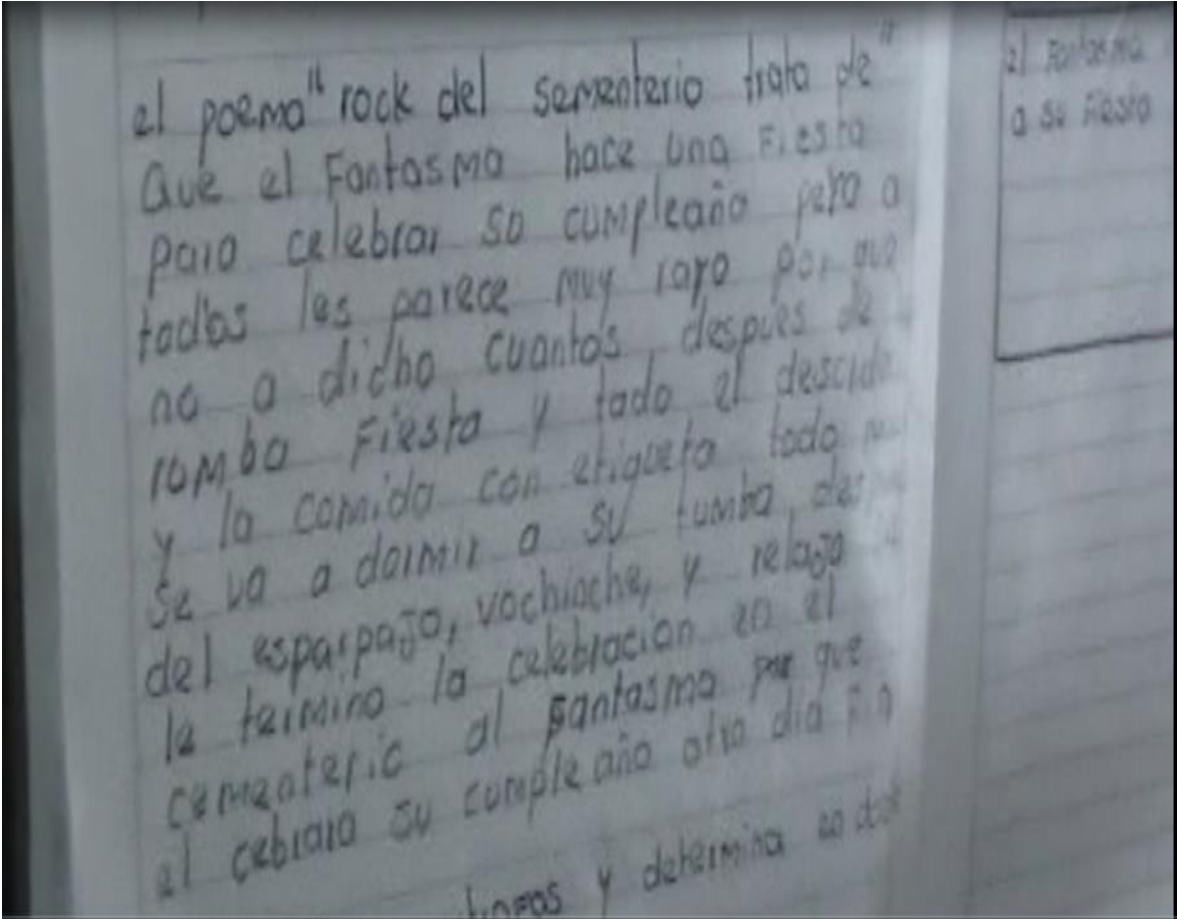 el poema "rock del sementerio trata de"
Que el Fantasma hace una Fiesta
para celebrar su cumpleaño pero a
todos les parece muy raro por que
no a dicho cuantos después de
rumba Fiesta y todo el descide
y la comida con etiqueta todo
se va a dormir a su tumba
del esparpajo, vochinche, y relajo
le termino la celebracion en el
cementerio al Fantasma por que
el cebrara su cumpleaño otro dia Fin
y determina
el Fantasma
a su Fiesta